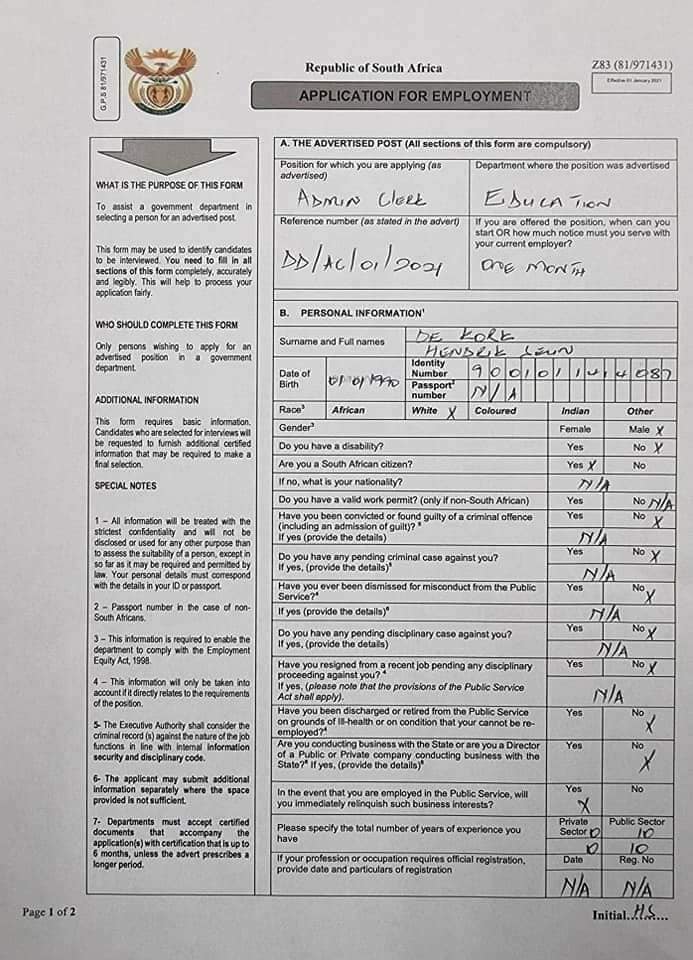 G.P.S 81/971431
Republic of South Africa
Z83 (81/971431)
Effective 01 January 2021
APPLICATION FOR EMPLOYMENT
WHAT IS THE PURPOSE OF THIS FORM
To assist a government department in
selecting a person for an advertised post.
This form may be used to identify candidates
to be interviewed. You need to fill in all
sections of this form completely, accurately
and legibly. This will help to process your
application fairly.
WHO SHOULD COMPLETE THIS FORM
Only persons wishing to apply for an
advertised position in a government
department.
ADDITIONAL INFORMATION
This form requires basic information.
Candidates who are selected for interviews will
be requested to furnish additional certified
information that may be required to make a
final selection.
SPECIAL NOTES
1 – All information will be treated with the
strictest confidentiality and will not be
disclosed or used for any other purpose than
to assess the suitability of a person, except in
so far as it may be required and permitted by
law. Your personal details must correspond
with the details in your ID or passport.
2 – Passport number in the case of non-
South Africans.
3 – This information is required to enable the
department to comply with the Employment
Equity Act, 1998.
4 – This information will only be taken into
account if it directly relates to the requirements
of the position.
5- The Executive Authority shall consider the
criminal record (s) against the nature of the job
functions in line with internal information
security and disciplinary code.
6- The applicant may submit additional
information separately where the space
provided is not sufficient.
7- Departments must accept certified
documents that accompany the
application(s) with certification that is up to
6 months, unless the advert prescribes a
longer period.
A. THE ADVERTISED POST (All sections of this form are compulsory)
Position for which you are applying (as
advertised)
ADMIN CLERK
Department where the position was advertised
EDUCATION
Reference number (as stated in the advert)
DD/AC/01/2021
If you are offered the position, when can you
start OR how much notice must you serve with
your current employer?
ONE MONTH
B. PERSONAL INFORMATION¹
Surname and Full names
DE KORK
HENDRIK
Date of
Birth
01/01/1990
Identity
Number
9001011414087
Passport²
number
N/A
Race³ African White X Coloured Indian Other
Gender³ Female Male X
Do you have a disability? Yes No X
Are you a South African citizen? Yes X No
If no, what is your nationality? N/A
Do you have a valid work permit? (only if non-South African) Yes No N/A
Have you been convicted or found guilty of a criminal offence Yes No X
(including an admission of guilt)? ⁵
If yes (provide the details) N/A
Do you have any pending criminal case against you? Yes No X
If yes, (provide the details)⁵ N/A
Have you ever been dismissed for misconduct from the Public Yes No X
Service?⁴
If yes (provide the details)⁶ N/A
Do you have any pending disciplinary case against you? Yes No X
If yes, (provide the details) N/A
Have you resigned from a recent job pending any disciplinary Yes No X
proceeding against you? ⁴
If yes, (please note that the provisions of the Public Service N/A
Act shall apply).
Have you been discharged or retired from the Public Service Yes No X
on grounds of Ill-health or on condition that your cannot be re-
employed?⁴
Are you conducting business with the State or are you a Director Yes No X
of a Public or Private company conducting business with the
State?⁶ If yes, (provide the details)⁶
In the event that you are employed in the Public Service, will Yes X No
you immediately relinquish such business interests?
Please specify the total number of years of experience you
have
Private
Sector 0
Public Sector
10
0 10
If your profession or occupation requires official registration,
provide date and particulars of registration
Date Reg. No
N/A N/A
Page 1 of 2
Initial...HS......